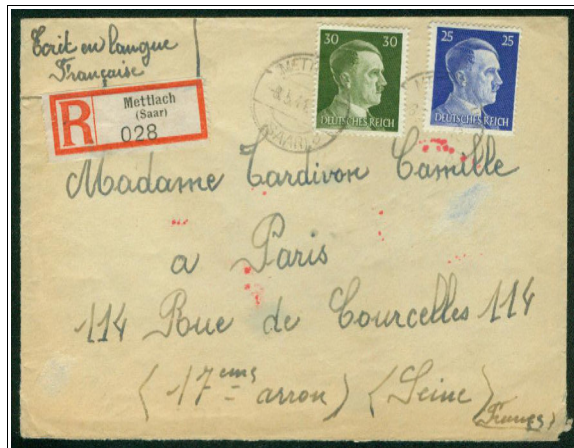 Ecrit en langue
Française
R
Mettlach
(Saar)
028
30 30
DEUTSCHES REICH
25 25
DEUTSCHES REICH
(SAAR)
Madame Tardivon Camille
a Paris
114 Rue de Courcelles 114
(17eme arron) (Seine)